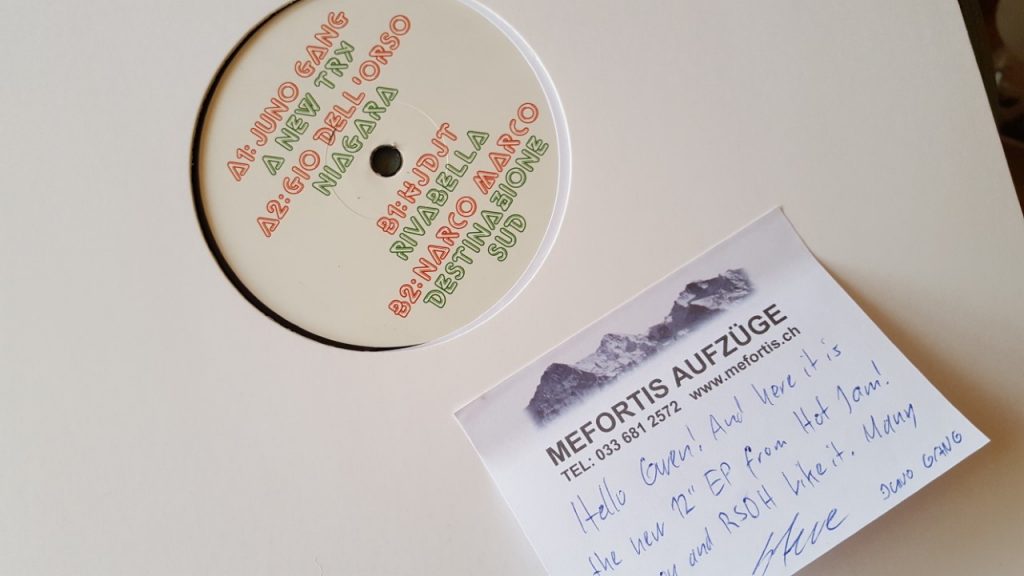 A1: JUNO GANG
A NEW TRX
A2: GIO DELL'ORSO
NIAGARA
B1: HJDJT
RIVABELLA
B2: NARCO MARCO
DESTINAZIONE
SUD
MEFORTIS AUFZÜGE
TEL: 033 681 2572 www.mefortis.ch
Hello Gwen! And here it is
the new 12" EP from Hot Jam!
and RSOH like it. Many
Steve JUNO GANG